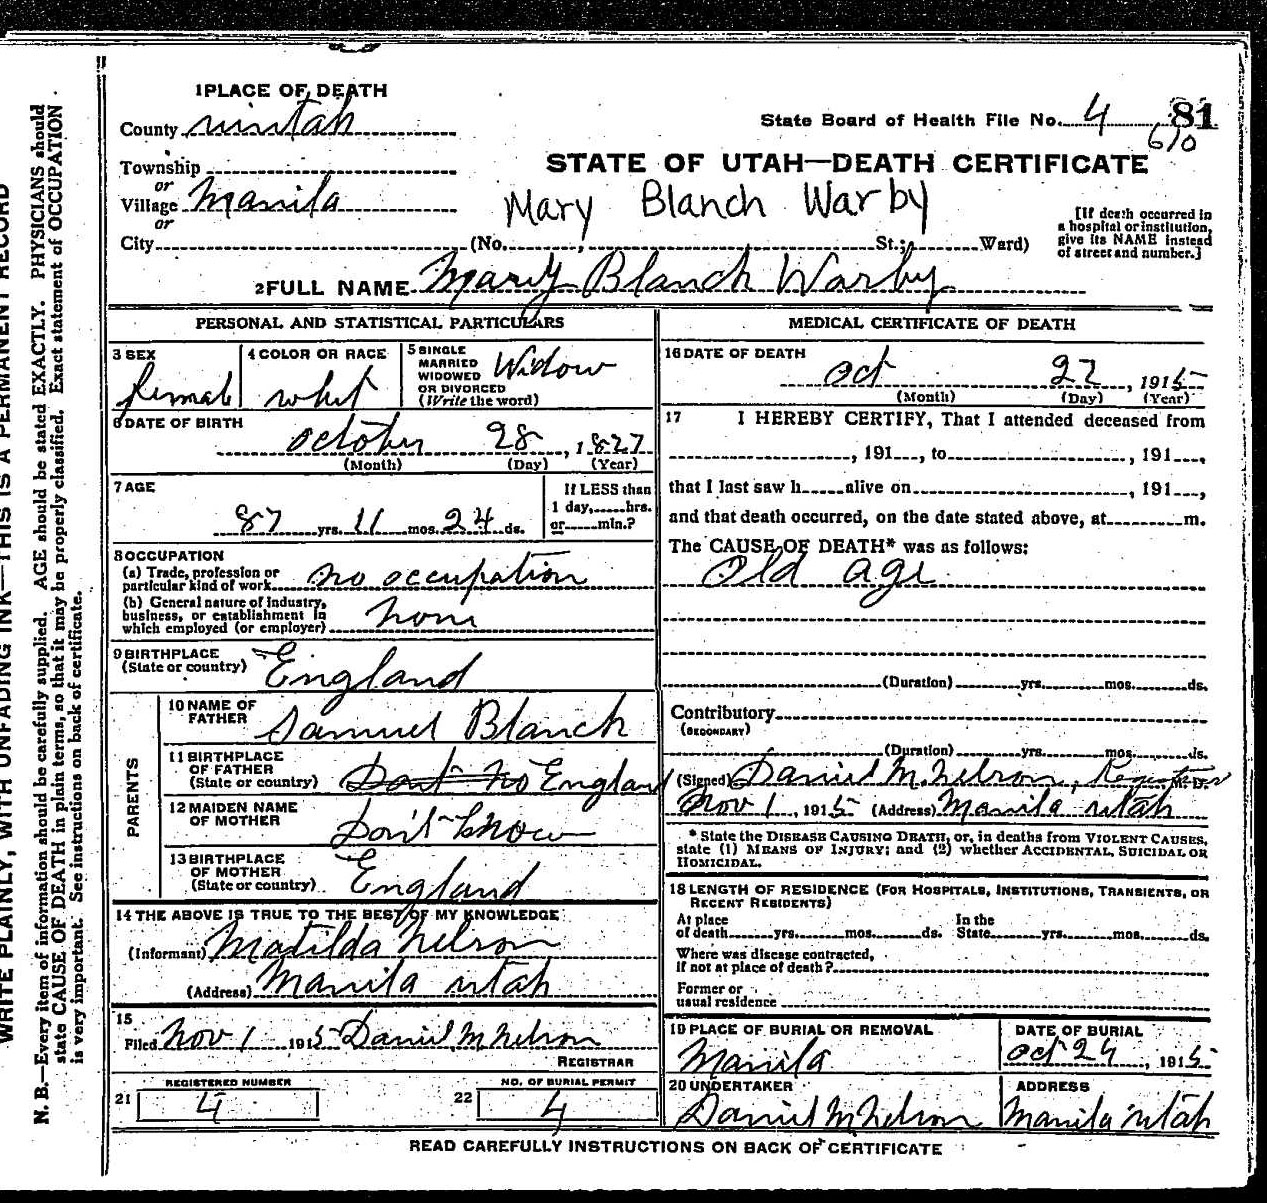 WRITE PLAINLY, WITH UNFADING INK—THIS IS A PERMANENT RECORD
N. B.—Every item of information should be carefully supplied. AGE should be stated EXACTLY. PHYSICIANS should
state CAUSE OF DEATH in plain terms, so that it may be properly classified. Exact statement of OCCUPATION
is very important. See instructions on back of certificate.
1 PLACE OF DEATH
County uintah
State Board of Health File No. 4 81
610
Township
or
Village Manila
or
City (No. , St.; Ward)
STATE OF UTAH—DEATH CERTIFICATE
Mary Blanch Warby
[If death occurred in
a hospital or institution,
give its NAME instead
of street and number.]
2 FULL NAME Mary Blanch Warby
PERSONAL AND STATISTICAL PARTICULARS
3 SEX
female
4 COLOR OR RACE
whit
5 SINGLE
MARRIED
WIDOWED
OR DIVORCED
(Write the word)
Widow
6 DATE OF BIRTH
october 28, 1827
(Month) (Day) (Year)
7 AGE
87 yrs. 11 mos. 24 ds.
If LESS than
1 day, hrs.
or min.?
8 OCCUPATION
(a) Trade, profession or
particular kind of work no occupation
(b) General nature of industry,
business, or establishment in
which employed (or employer) non
9 BIRTHPLACE
(State or country) England
PARENTS
10 NAME OF
FATHER Samuel Blanch
11 BIRTHPLACE
OF FATHER
(State or country) Dont no England
12 MAIDEN NAME
OF MOTHER Don't know
13 BIRTHPLACE
OF MOTHER
(State or country) England
14 THE ABOVE IS TRUE TO THE BEST OF MY KNOWLEDGE
(Informant) Matilda Nelson
(Address) Manila utah
15
Filed Nov 1, 1915 Daniel M. Nelson
REGISTRAR
REGISTERED NUMBER
21 4
NO. OF BURIAL PERMIT
22 4
MEDICAL CERTIFICATE OF DEATH
16 DATE OF DEATH
oct 22, 1915
(Month) (Day) (Year)
17 I HEREBY CERTIFY, That I attended deceased from
, 191 , to , 191 ,
that I last saw h alive on , 191 ,
and that death occurred, on the date stated above, at m.
The CAUSE OF DEATH* was as follows:
Old age
(Duration) yrs. mos. ds.
Contributory
(SECONDARY)
(Duration) yrs. mos. ds.
(Signed) Daniel M. Nelson, Registrar M. D.
Nov 1, 1915 (Address) Manila utah
* State the DISEASE CAUSING DEATH, or, in deaths from VIOLENT CAUSES,
state (1) MEANS OF INJURY; and (2) whether ACCIDENTAL, SUICIDAL OR
HOMICIDAL.
18 LENGTH OF RESIDENCE (FOR HOSPITALS, INSTITUTIONS, TRANSIENTS, OR
RECENT RESIDENTS)
At place
of death yrs. mos. ds.
In the
State yrs. mos. ds.
Where was disease contracted,
If not at place of death?
Former or
usual residence
19 PLACE OF BURIAL OR REMOVAL
Manila
DATE OF BURIAL
oct 24, 1915
20 UNDERTAKER
Daniel M Nelson
ADDRESS
Manila utah
READ CAREFULLY INSTRUCTIONS ON BACK OF CERTIFICATE